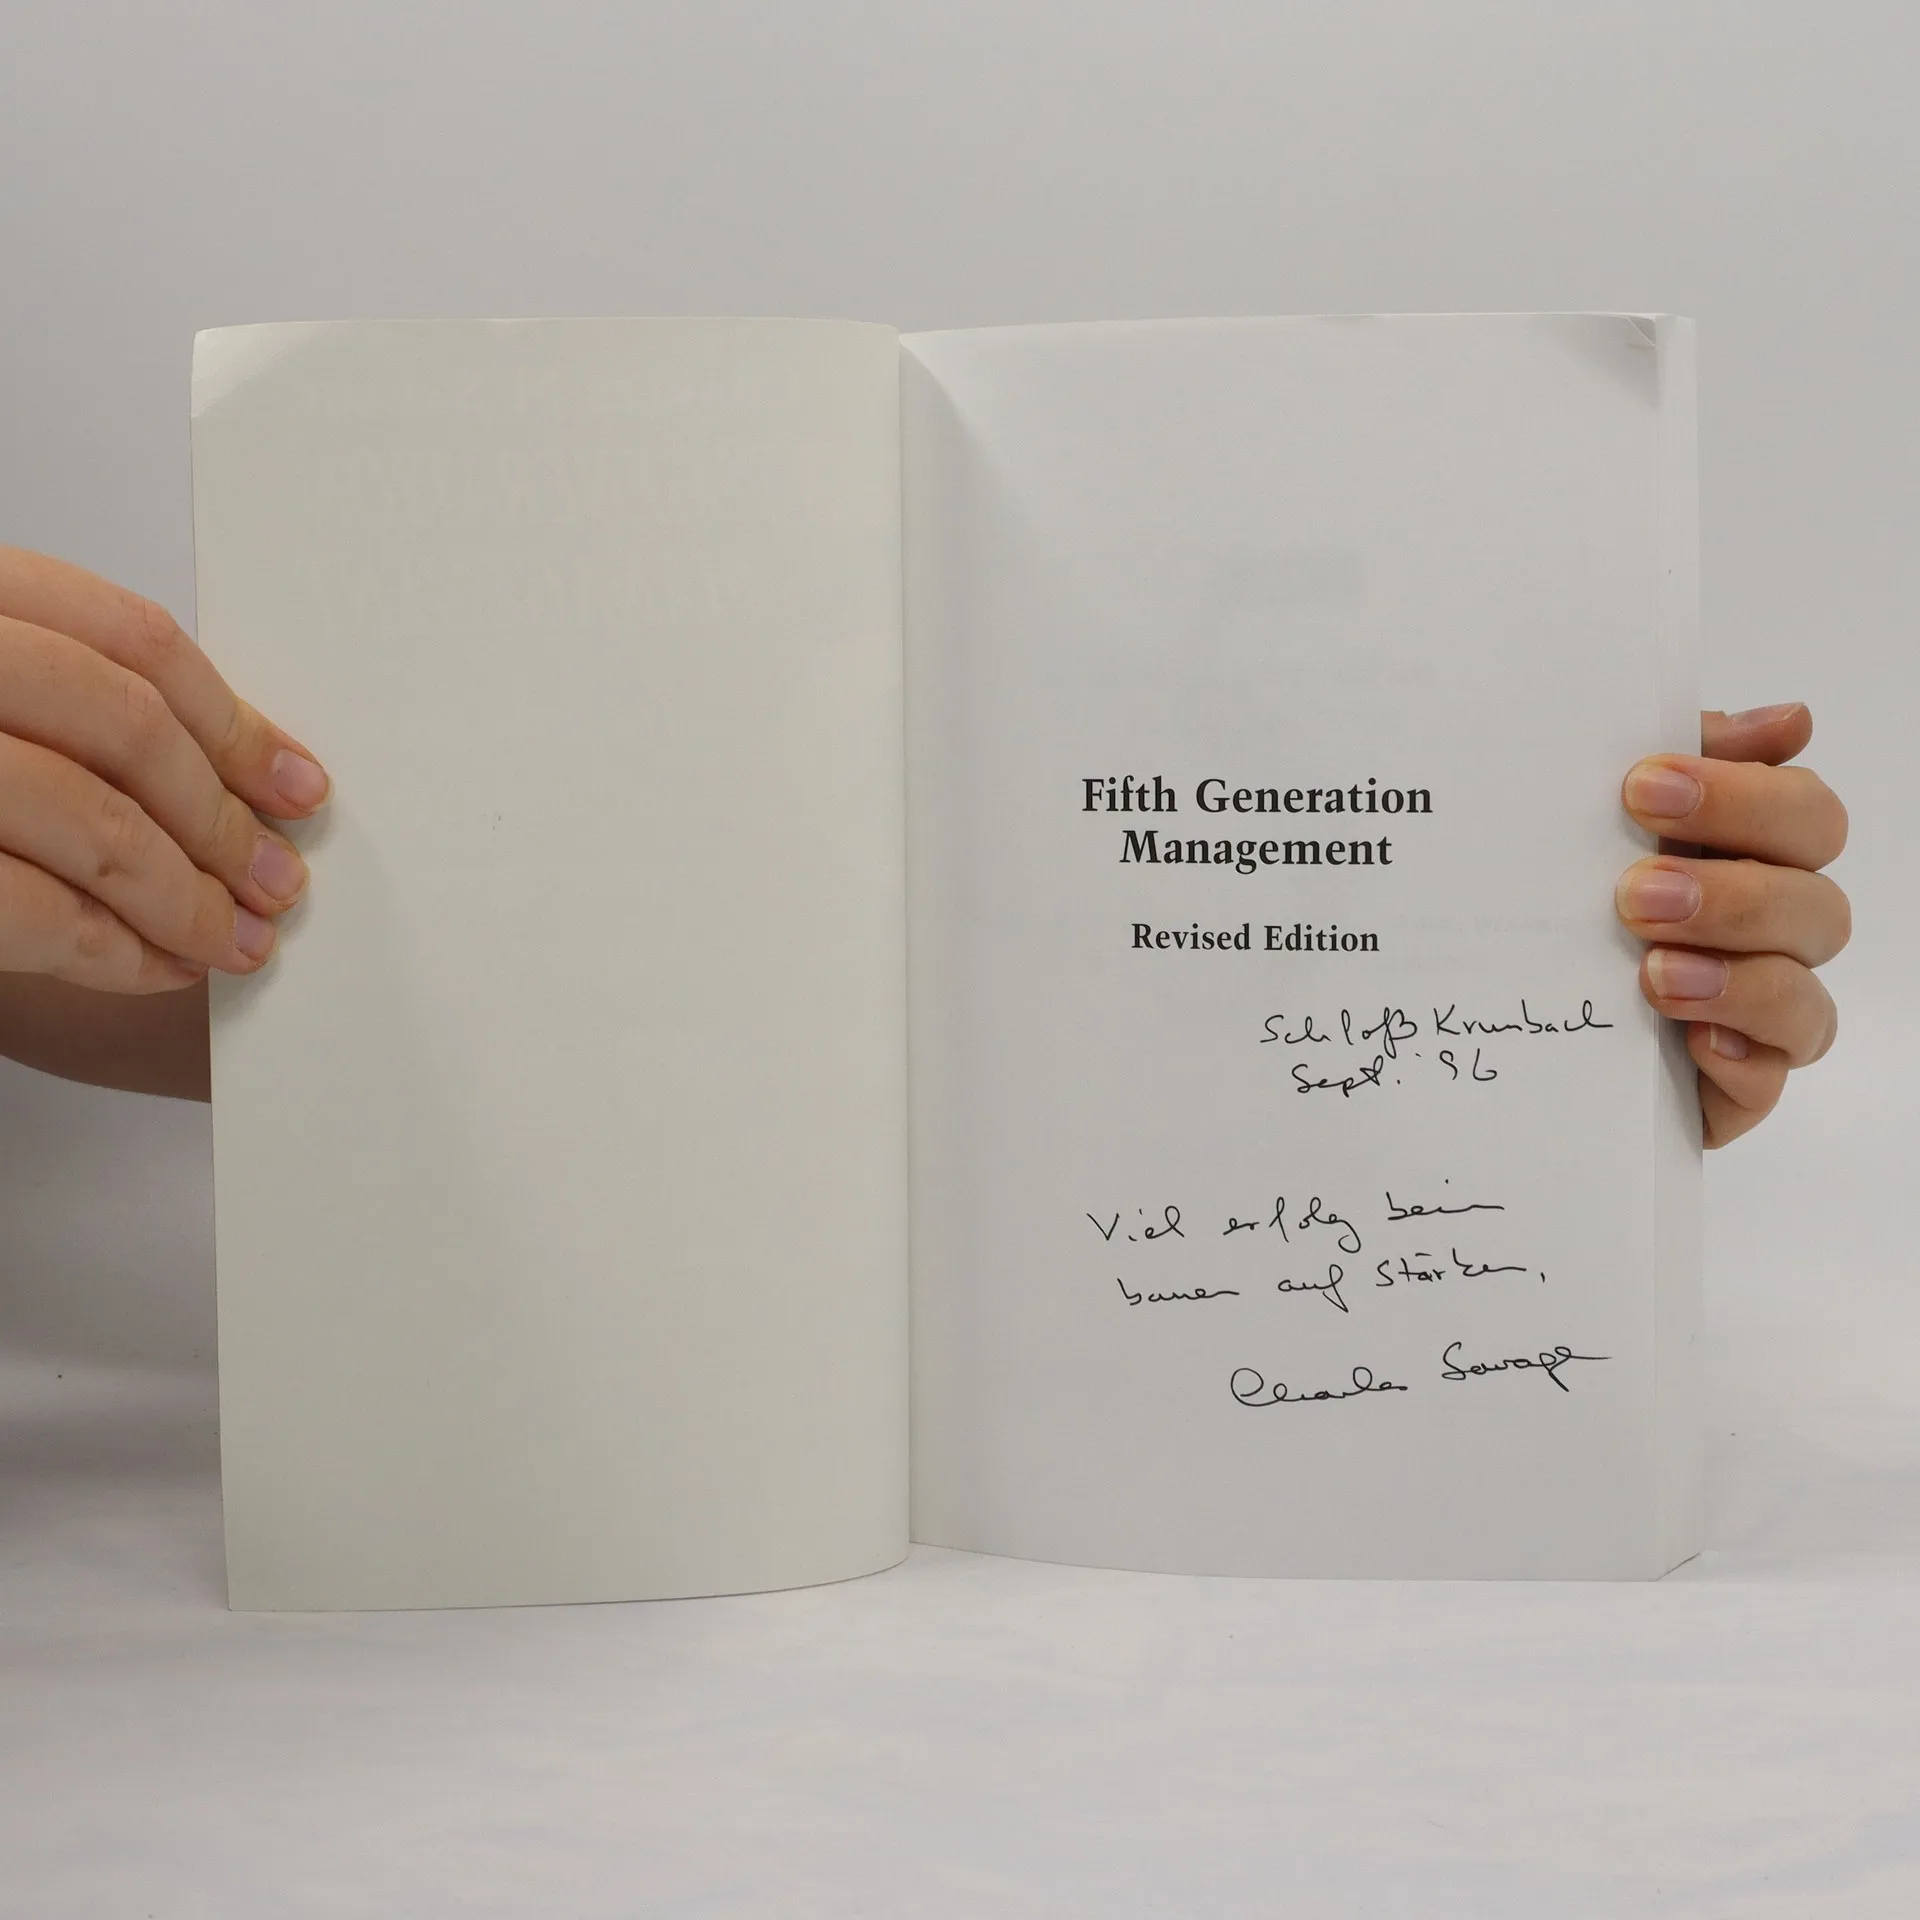 Fifth Generation
Management
Revised Edition
Schloß Krumbach
Sept. '96
Viel erfolg beim
bauen auf Stärken,
Charles Savage